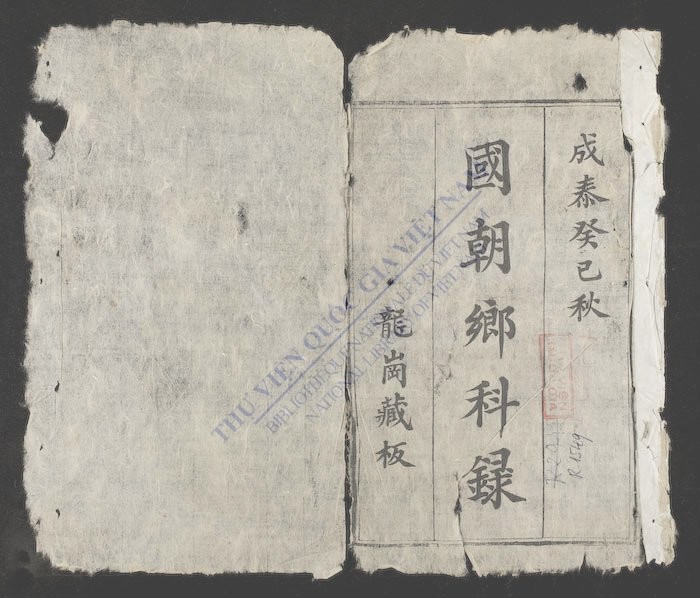 成泰癸巳秋
國朝鄉科録
龍崗藏板
R 1549
THƯ VIỆN QUỐC GIA VIỆT NAM
BIBLIOTHÈQUE NATIONALE DU VIETNAM
NATIONAL LIBRARY OF VIETNAM